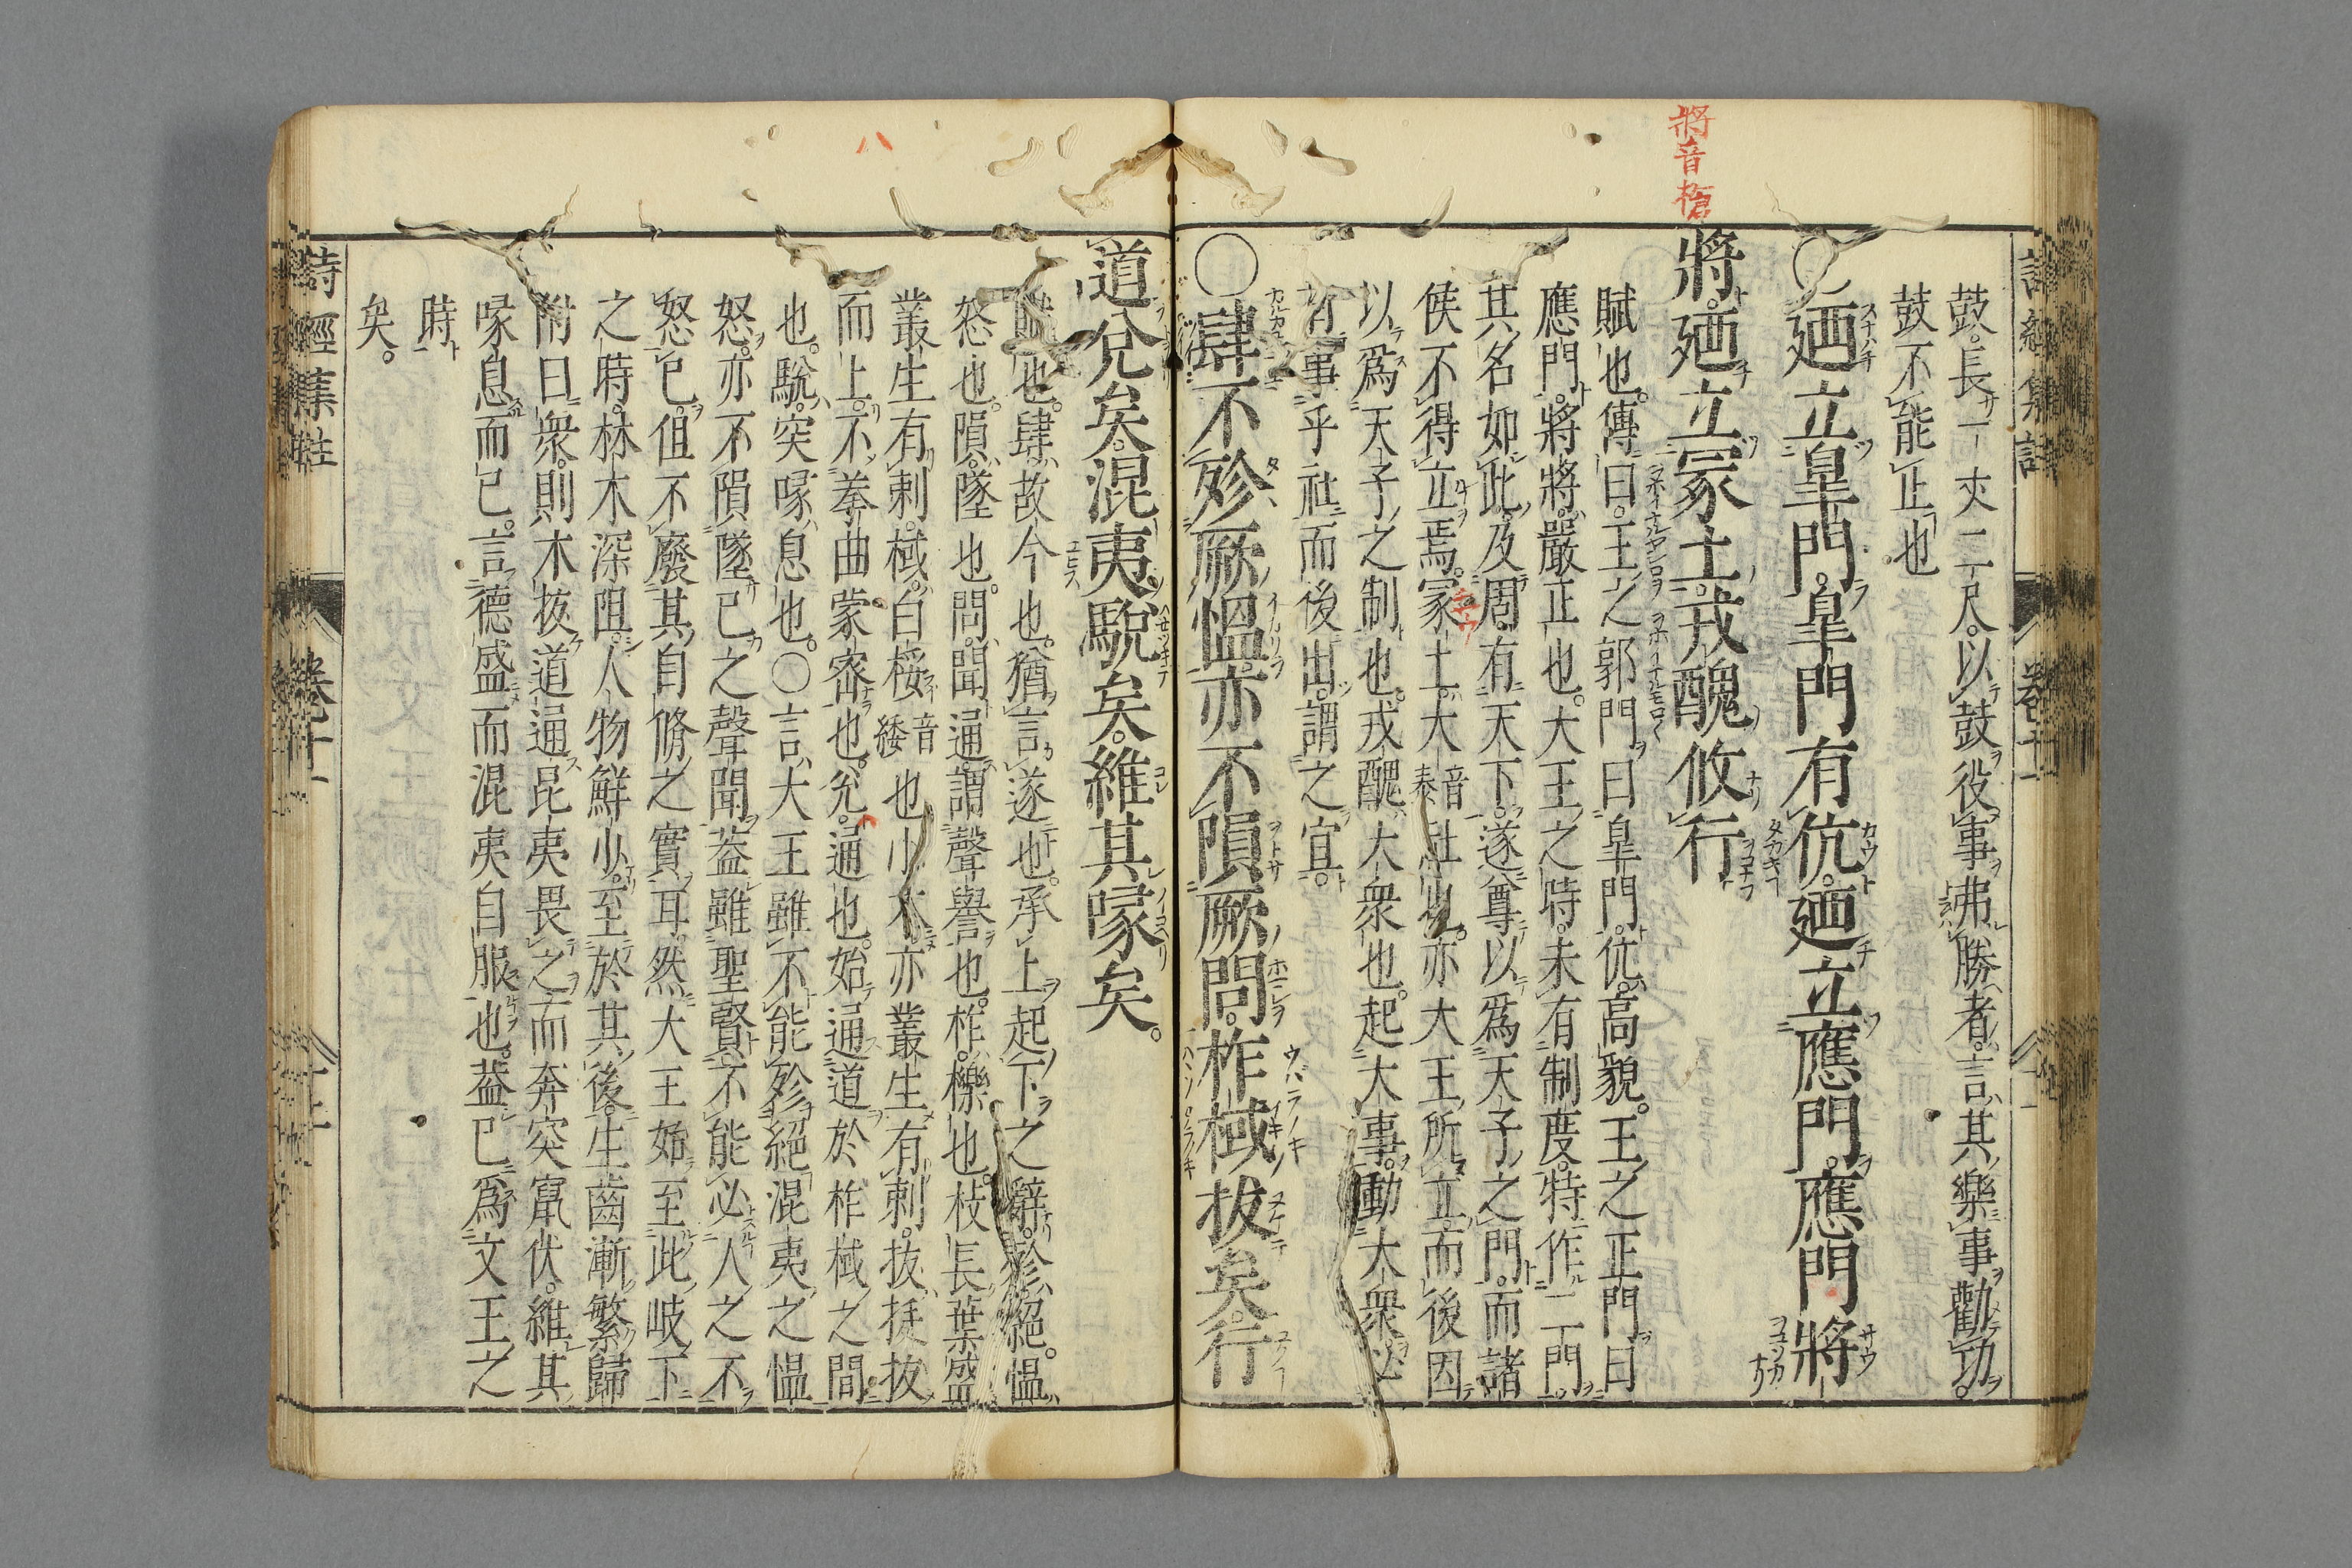 鼓長一丈二尺。以鼓役事弗勝者。言其樂事勸功。
鼓不能止也
〇廼立皐門。皐門有伉。廼立應門。應門將
將。廼立冢土。戎醜攸行
將音槍
賦也。傳曰。王之郭門曰皐門。伉。高貌。王之正門曰
應門。將將。嚴正也。大王之時。未有制度。特作二門。
其名如此。及周有天下。遂尊以爲天子之門。而諸
侯不得立焉。冢土。大音泰社也。亦大王所立。而後因
以爲天子之制也。戎醜。大衆也。起大事。動大衆。必
有事乎社而後出。謂之宜。
〇肆不殄厥慍。亦不隕厥問。柞棫拔矣。行
道兌矣。混夷駾矣。維其喙矣。
賦也。肆。故今也。猶言遂也。承上起下之辭。殄。絕。慍。
怒也。隕。墜也。問。聞通。謂聲譽也。柞。櫟也。枝長葉盛。
叢生有刺。棫。白桵音緌也。小木。亦叢生有刺。拔。挺拔
而上。不拳曲蒙密也。兌。通也。始通道於柞棫之間
也。駾。突。喙。息也。〇言大王雖不能殄絕混夷之慍
怒。亦不隕墜己之聲聞。葢雖聖賢。不能必人之不
怒己。但不廢其自脩之實耳。然大王始至此岐下
之時。林木深阻。人物鮮少。至於其後。生齒漸繁。歸
附日衆。則木拔道通。昆夷畏之。而奔突竄伏。維其
喙息而已。言德盛而混夷自服也。葢已爲文王之
時
矣。
詩經集註
卷十一